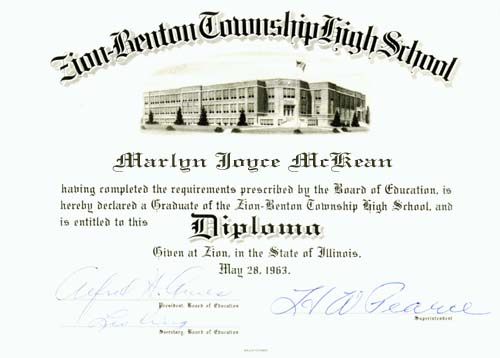 Zion-Benton Township High School
Marlyn Joyce McKean
having completed the requirements prescribed by the Board of Education, is
hereby declared a Graduate of the Zion-Benton Township High School, and
is entitled to this Diploma
Given at Zion, in the State of Illinois,
May 28, 1963.
Alfred H.
President, Board of Education
H W Pearce
Superintendent
Secretary, Board of Education